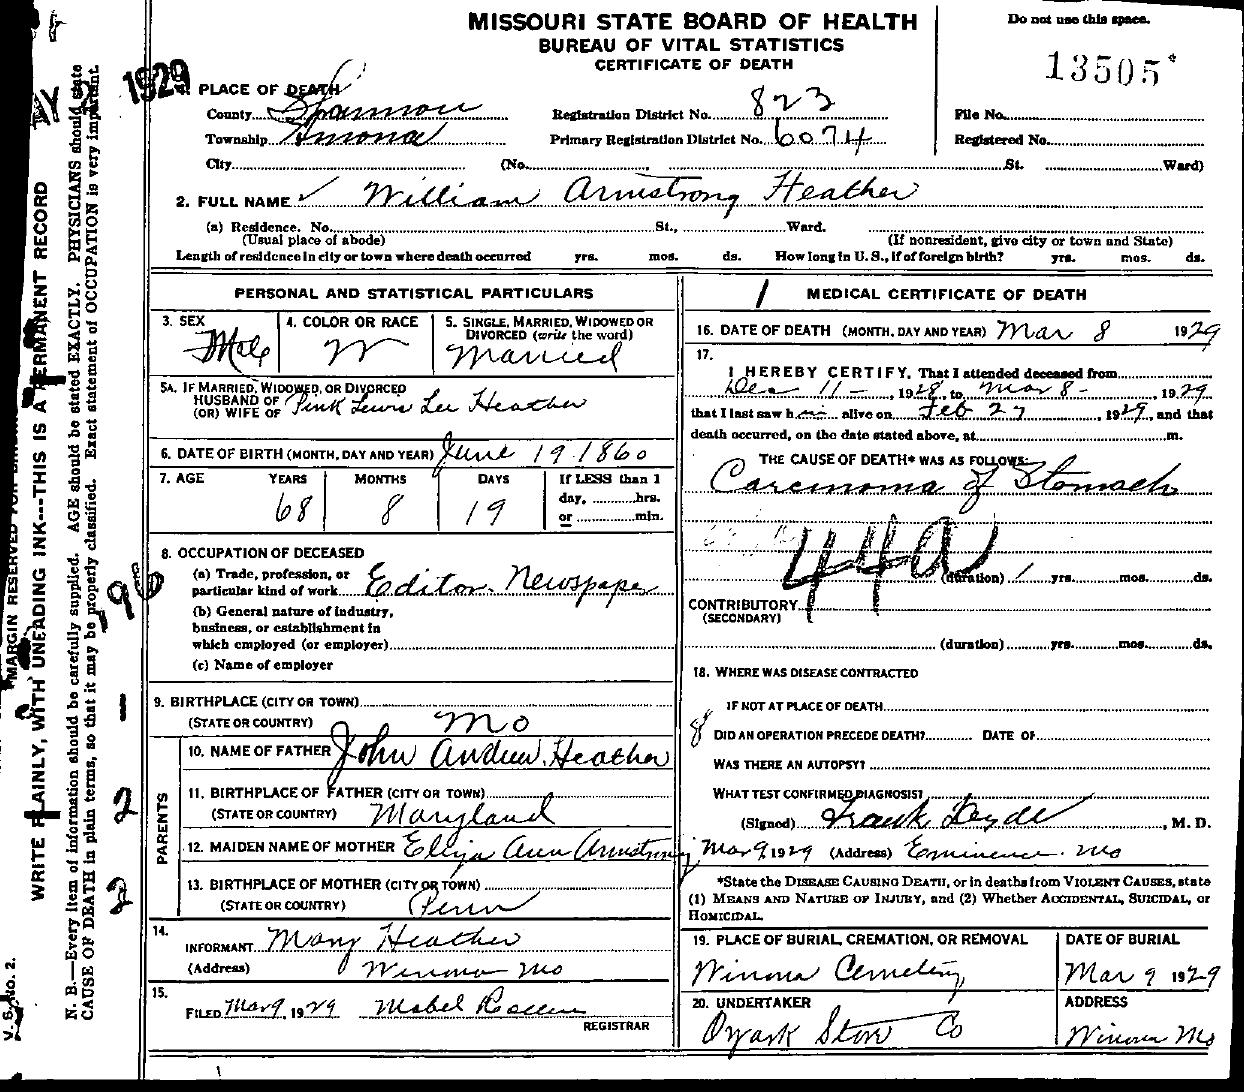 MISSOURI STATE BOARD OF HEALTH
BUREAU OF VITAL STATISTICS
CERTIFICATE OF DEATH
Do not use this space.
13505
1929
1. PLACE OF DEATH
County Shannon
Township Winona
City (No. St. Ward)
Registration District No. 823
Primary Registration District No. 6074
File No.
Registered No.
2. FULL NAME William Armstrong Heather
(a) Residence. No. St., Ward.
(Usual place of abode) (If nonresident, give city or town and State)
Length of residence in city or town where death occurred yrs. mos. ds. How long in U. S., if of foreign birth? yrs. mos. ds.
PERSONAL AND STATISTICAL PARTICULARS
3. SEX Male
4. COLOR OR RACE W
5. SINGLE, MARRIED, WIDOWED OR DIVORCED (write the word) Married
5A. IF MARRIED, WIDOWED, OR DIVORCED
HUSBAND OF
(OR) WIFE OF Pink Lewis Lee Heather
6. DATE OF BIRTH (MONTH, DAY AND YEAR) June 19 1860
7. AGE YEARS MONTHS DAYS If LESS than 1
day, hrs.
or min.
68 8 19
8. OCCUPATION OF DECEASED
(a) Trade, profession, or
particular kind of work Editor. Newspaper
(b) General nature of industry,
business, or establishment in
which employed (or employer)
(c) Name of employer
9. BIRTHPLACE (CITY OR TOWN)
(STATE OR COUNTRY) Mo
PARENTS
10. NAME OF FATHER John Andrew Heather
11. BIRTHPLACE OF FATHER (CITY OR TOWN)
(STATE OR COUNTRY) Maryland
12. MAIDEN NAME OF MOTHER Eliza Ann Armstrong
13. BIRTHPLACE OF MOTHER (CITY OR TOWN)
(STATE OR COUNTRY) Penn
14.
INFORMANT Mary Heather
(Address) Winona Mo
15.
FILED Mar 9, 1929 Mabel
REGISTRAR
MEDICAL CERTIFICATE OF DEATH
16. DATE OF DEATH (MONTH, DAY AND YEAR) Mar 8 1929
17.
I HEREBY CERTIFY, That I attended deceased from
Dec 11 - , 1928, to Mar 8 - , 1929
that I last saw him alive on Feb 27, 1929, and that
death occurred, on the date stated above, at m.
THE CAUSE OF DEATH* WAS AS FOLLOWS:
Carcinoma of Stomach
44a
(duration) 1 yrs. mos. ds.
CONTRIBUTORY
(SECONDARY)
(duration) yrs. mos. ds.
18. WHERE WAS DISEASE CONTRACTED
IF NOT AT PLACE OF DEATH
DID AN OPERATION PRECEDE DEATH? DATE OF
WAS THERE AN AUTOPSY?
WHAT TEST CONFIRMED DIAGNOSIS?
(Signed) Frank Hyde, M. D.
Mar 9, 1929 (Address) Eminence. Mo
*State the DISEASE CAUSING DEATH, or in deaths from VIOLENT CAUSES, state
(1) MEANS AND NATURE OF INJURY, and (2) Whether ACCIDENTAL, SUICIDAL, or
HOMICIDAL.
19. PLACE OF BURIAL, CREMATION, OR REMOVAL DATE OF BURIAL
Winona Cemetery Mar 9 1929
20. UNDERTAKER ADDRESS
Ozark Store Co Winona Mo
WRITE PLAINLY, WITH UNFADING INK---THIS IS A PERMANENT RECORD
N. B.—Every item of information should be carefully supplied. AGE should be stated EXACTLY. PHYSICIANS should state
CAUSE OF DEATH in plain terms, so that it may be properly classified. Exact statement of OCCUPATION is very important.
V. S. NO. 2.